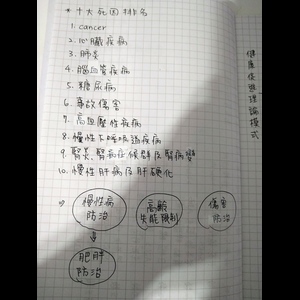 * 十大死因排名
1. cancer
2. 心臟疾病
3. 肺炎
4. 腦血管疾病
5. 糖尿病
6. 事故傷害
7. 高血壓性疾病
8. 慢性下呼吸道疾病
9. 腎炎、腎病症候群及腎病變
10. 慢性肝病及肝硬化
慢性病
防治
高齡
失能預防
傷害
防治
⇓
肥胖
防治
健康促進理論模式